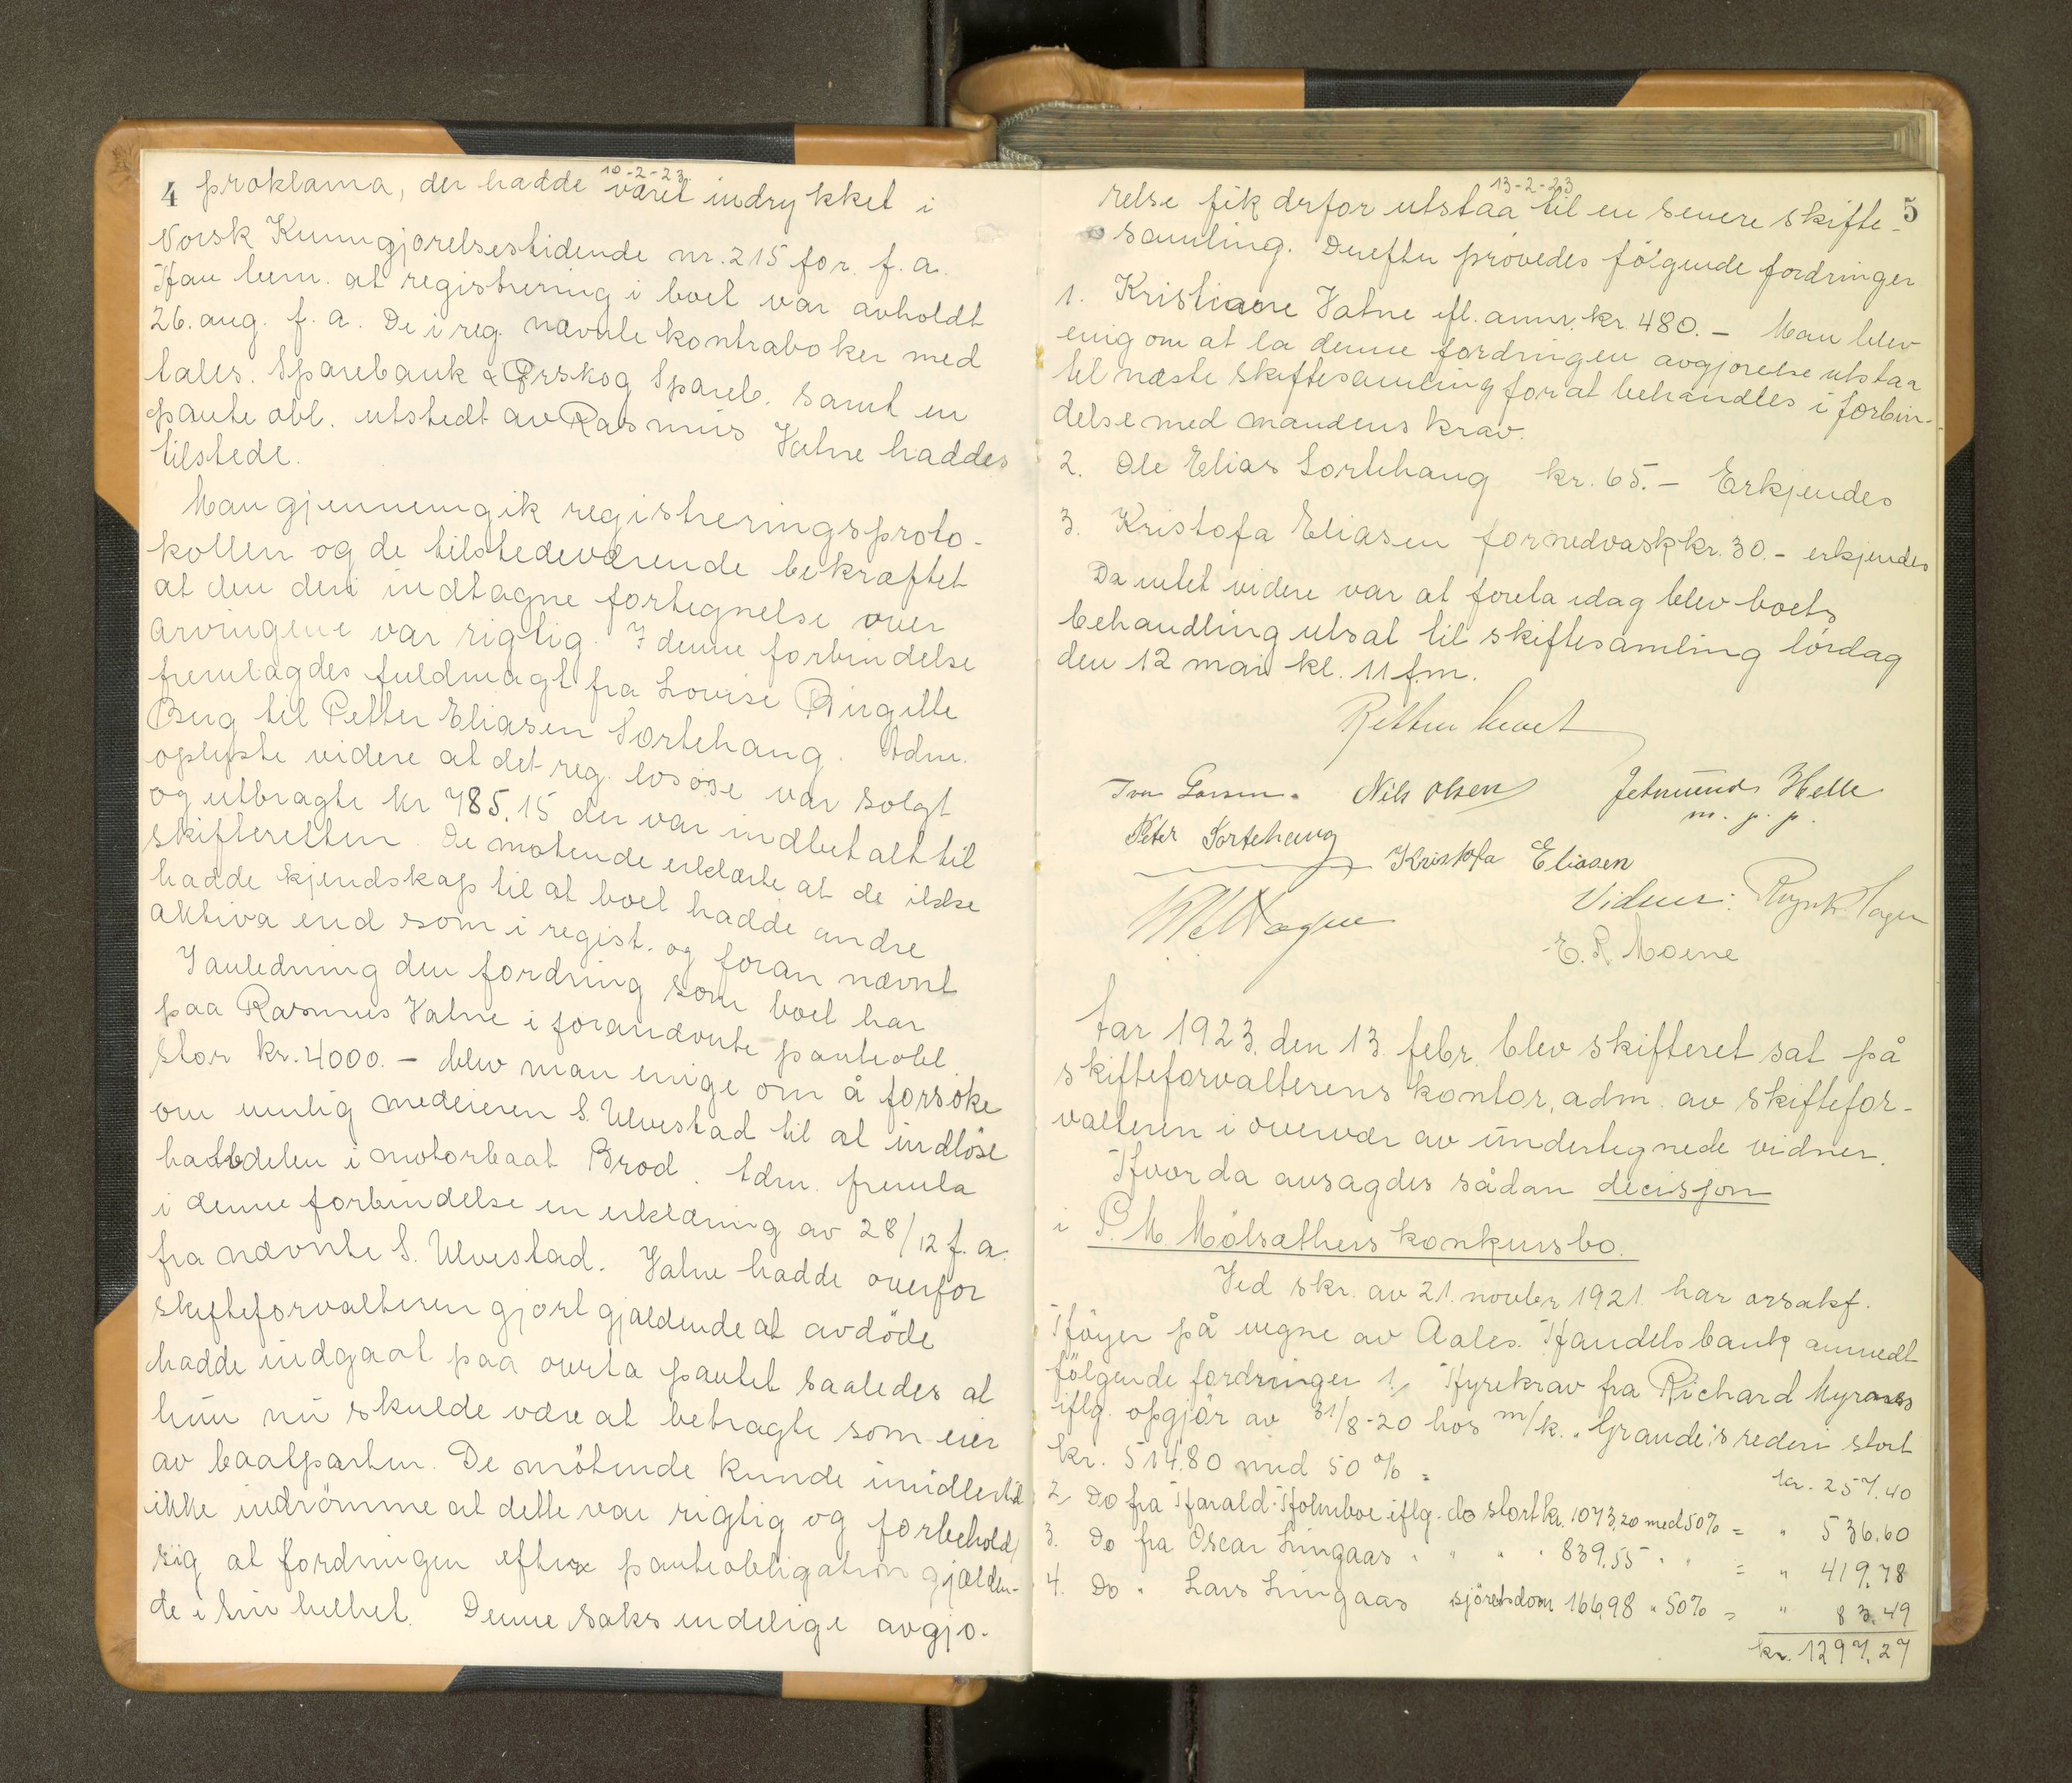 10-2-23.
4 proklama, der hadde været indrykket i
Norsk Kunngjørelsestidende nr. 215 for f. a.
Han bem. at registrering i boet var avholdt
26. aug. f. a. De i reg. nævnte kontrabøker med
Aales. Sparebank & Ørskog Spareb. samt en
pante obl. utstedt av Rasmus Vatne haddes
tilstede.
Man gjennemgik registreringsproto-
kollen og de tilstedeværende bekræftet
at den deri indtagne fortegnelse over
arvingene var rigtig. I denne forbindelse
fremlagdes fuldmagt fra Lovise Birgitte
Berg til Petter Eliasen Sortehaug. Adm.
oplyste videre at det reg. løsøre var solgt
og utbragte kr 785.15 der var indbetalt til
skifteretten. De møtende erklærte at de ikke
hadde kjendskap til at boet hadde andre
aktiva end som i regist. og foran nævnt
I anledning den fordring som boet har
paa Rasmus Vatne i forannævnte panteobl.
stor kr. 4000.- blev man enige om å forsøke
om mulig medeieren S. Ulvestad til at indløse
halvdelen i motorbaat Brod. Adm. fremla
i denne forbindelse en erklæring av 28/12 f. a.
fra nævnte S. Ulvestad. Vatne hadde overfor
skifteforvalteren gjort gjældende at avdöde
hadde indgaat paa overta pantet saaledes at
hun nu skulde være at betragte som eier
av baatparten. De mötende kunde imidlertid
ikke indrömme at dette var rigtig og forbeholdt
sig at fordringen efter panteobligation gjælden-
de i sin helhet. Denne saks endelige avgjø-
13-2-23
5
relse fik drfor utstaa til en senere skifte-
samling. Derefter prövedes følgende fordringer
1. Kristiane Vatne efl. anm. kr. 480.- Man blev
enig om at la denne fordringen avgjørelse utstaa
til næste skiftesamling for at behandles i forbin-
delse med mandens krav.
2. Ole Elias Sortehaug kr. 65.- Erkjendes
3. Kristofa Eliasen for nedvask kr. 30.- erkjendes
Da intet videre var at foreta idag blev boets
behandling utsat til skiftesamling lördag
den 12 mai kl. 11 f.m.
Retten hevet
Iver Larsen. Nils Olsen Jetmund Helle
m. p. p.
Peter Sortehaug Kristofa Eliasen
Vidner:
E. R. Moene
Aar 1923. den 13. febr. blev skifteret sat på
skifteforvalterens kontor, adm. av skiftefor-
valteren i overvær av undertegnede vidner.
Hvor da avsagdes sådan decisjon
i P. M. Mölsæthers konkursbo.
Ved skr. av 21. novbr 1921 har orsakf.
Höyer på vegne av Aales. Handelsbank anmedt
fölgende fordringer 1, Hyrekrav fra Richard Myrenes
iflg. opgjör av 31/8-20 hos m/k. "Grande"s rederi stort
kr. 514.80 med 50 % = kr. 257.40
2, Do fra Harald Holmboe iflg. do stort kr. 1073,20 med 50% = " 536.60
3. Do fra Oscar Lingaas " " " " 839.55 " " = " 419.78
4. Do " Lars Lingaas sjöretsdom 166,98 " 50% = " 83.49
kr. 1297.27